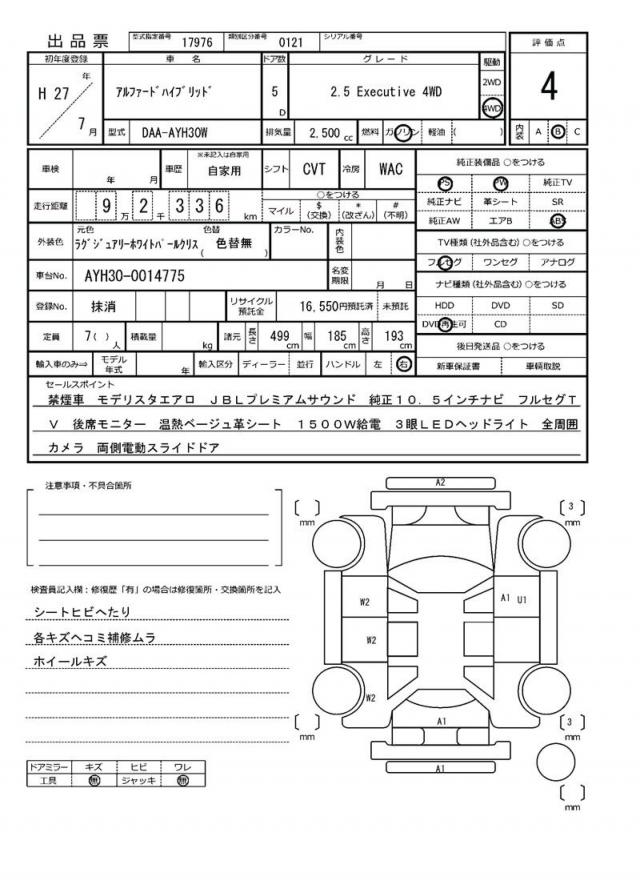 出品票 型式指定番号 17976 類別区分番号 0121 シリアル番号
初年度登録 車名 ドア数 グレード 駆動 評価点
H 27 年 7 月 アルファードハイブリッド 5 D 2.5 Executive 4WD 2WD 4WD 4
型式 DAA-AYH30W 排気量 2,500 cc 燃料 ガソリン 軽油 ( ) 内装 A B C
車検 年 月 車歴 ※未記入は自家用 自家用 シフト CVT 冷房 WAC
走行距離 9 万 2 千 3 3 6 km ○をつける マイル $ (交換) * (改ざん) # (不明)
外装色 元色 ラグジュアリーホワイトパールクリス 色替 ( 色替無 ) カラーNo. 内装色
車台No. AYH30-0014775 名変期限 月 日
登録No. 抹消 リサイクル預託金 16,550円預託済 未預託
定員 7( ) 人 積載量 kg 諸元 長さ 499 cm 幅 185 cm 高さ 193 cm
輸入車のみ⇒ モデル年式 年 輸入区分 ディーラー 並行 ハンドル 左 右
純正装備品 ○をつける
PS PW 純正TV
純正ナビ 革シート SR
純正AW エアB ABS
TV種類(社外品含む)○をつける
フルセグ ワンセグ アナログ
ナビ種類(社外品含む)○をつける
HDD DVD SD
DVD再生可 CD
後日発送品 ○をつける
新車保証書 車輌取説
セールスポイント
禁煙車 モデリスタエアロ JBLプレミアムサウンド 純正10.5インチナビ フルセグT
V 後席モニター 温熱ベージュ革シート 1500W給電 3眼LEDヘッドライト 全周囲
カメラ 両側電動スライドドア
注意事項・不具合箇所
検査員記入欄:修復歴「有」の場合は修復箇所・交換箇所を記入
シートヒビヘたり
各キズヘコミ補修ムラ
ホイールキズ
ドアミラー キズ ヒビ ワレ
工具 無 ジャッキ 無
A2
[ ] mm [ 3 ] mm
W2 A1 U1
W2
W2
A1
[ ] mm [ 3 ] mm
A1
[ ] mm